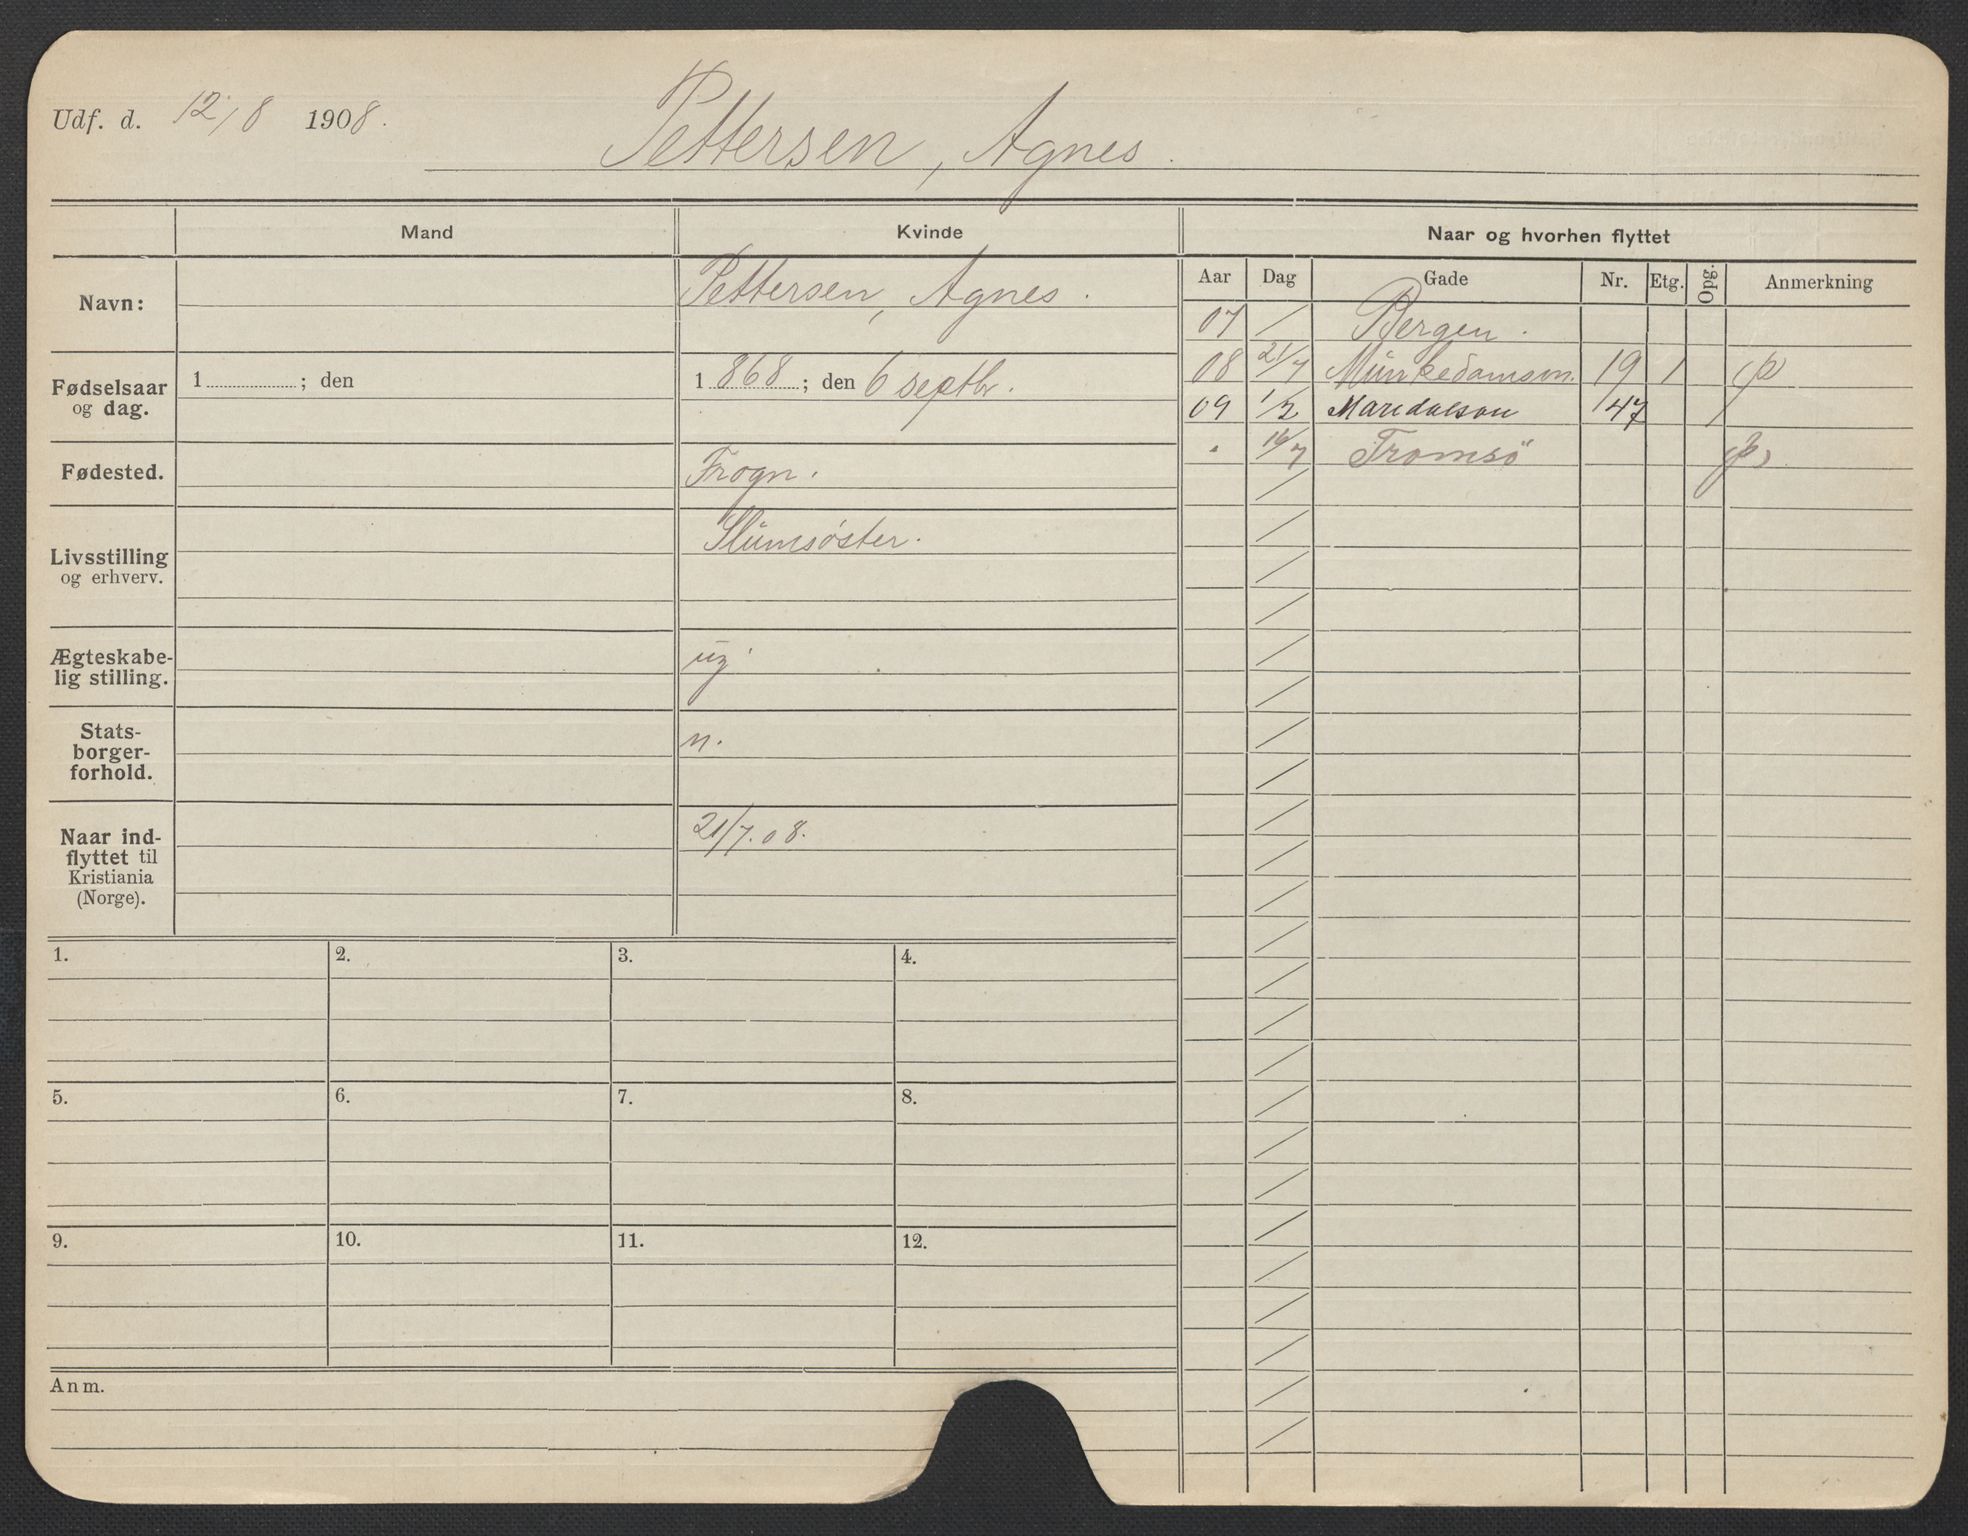 Udf. d. 12/8 1908.
Pettersen, Agnes.
Mand Kvinde Naar og hvorhen flyttet
Aar Dag Gade Nr. Etg. Opg. Anmerkning
Navn: Pettersen, Agnes.
Fødselsaar og dag. 1 ; den 1 868 ; den 6 septbr.
Fødested. Frogn.
Livsstilling og erhverv. Slumsøster.
Ægteskabe-
lig stilling. ug
Stats-
borger-
forhold. n.
Naar ind-
flyttet til
Kristiania
(Norge). 21/7.08.
07 / Bergen.
08 21/7 Munkedamsvn. 19 1 (p)
09 1/2 Maridalsvn 147 /
" 16/7 Tromsö (p)
1. 2. 3. 4.
5. 6. 7. 8.
9. 10. 11. 12.
Anm.